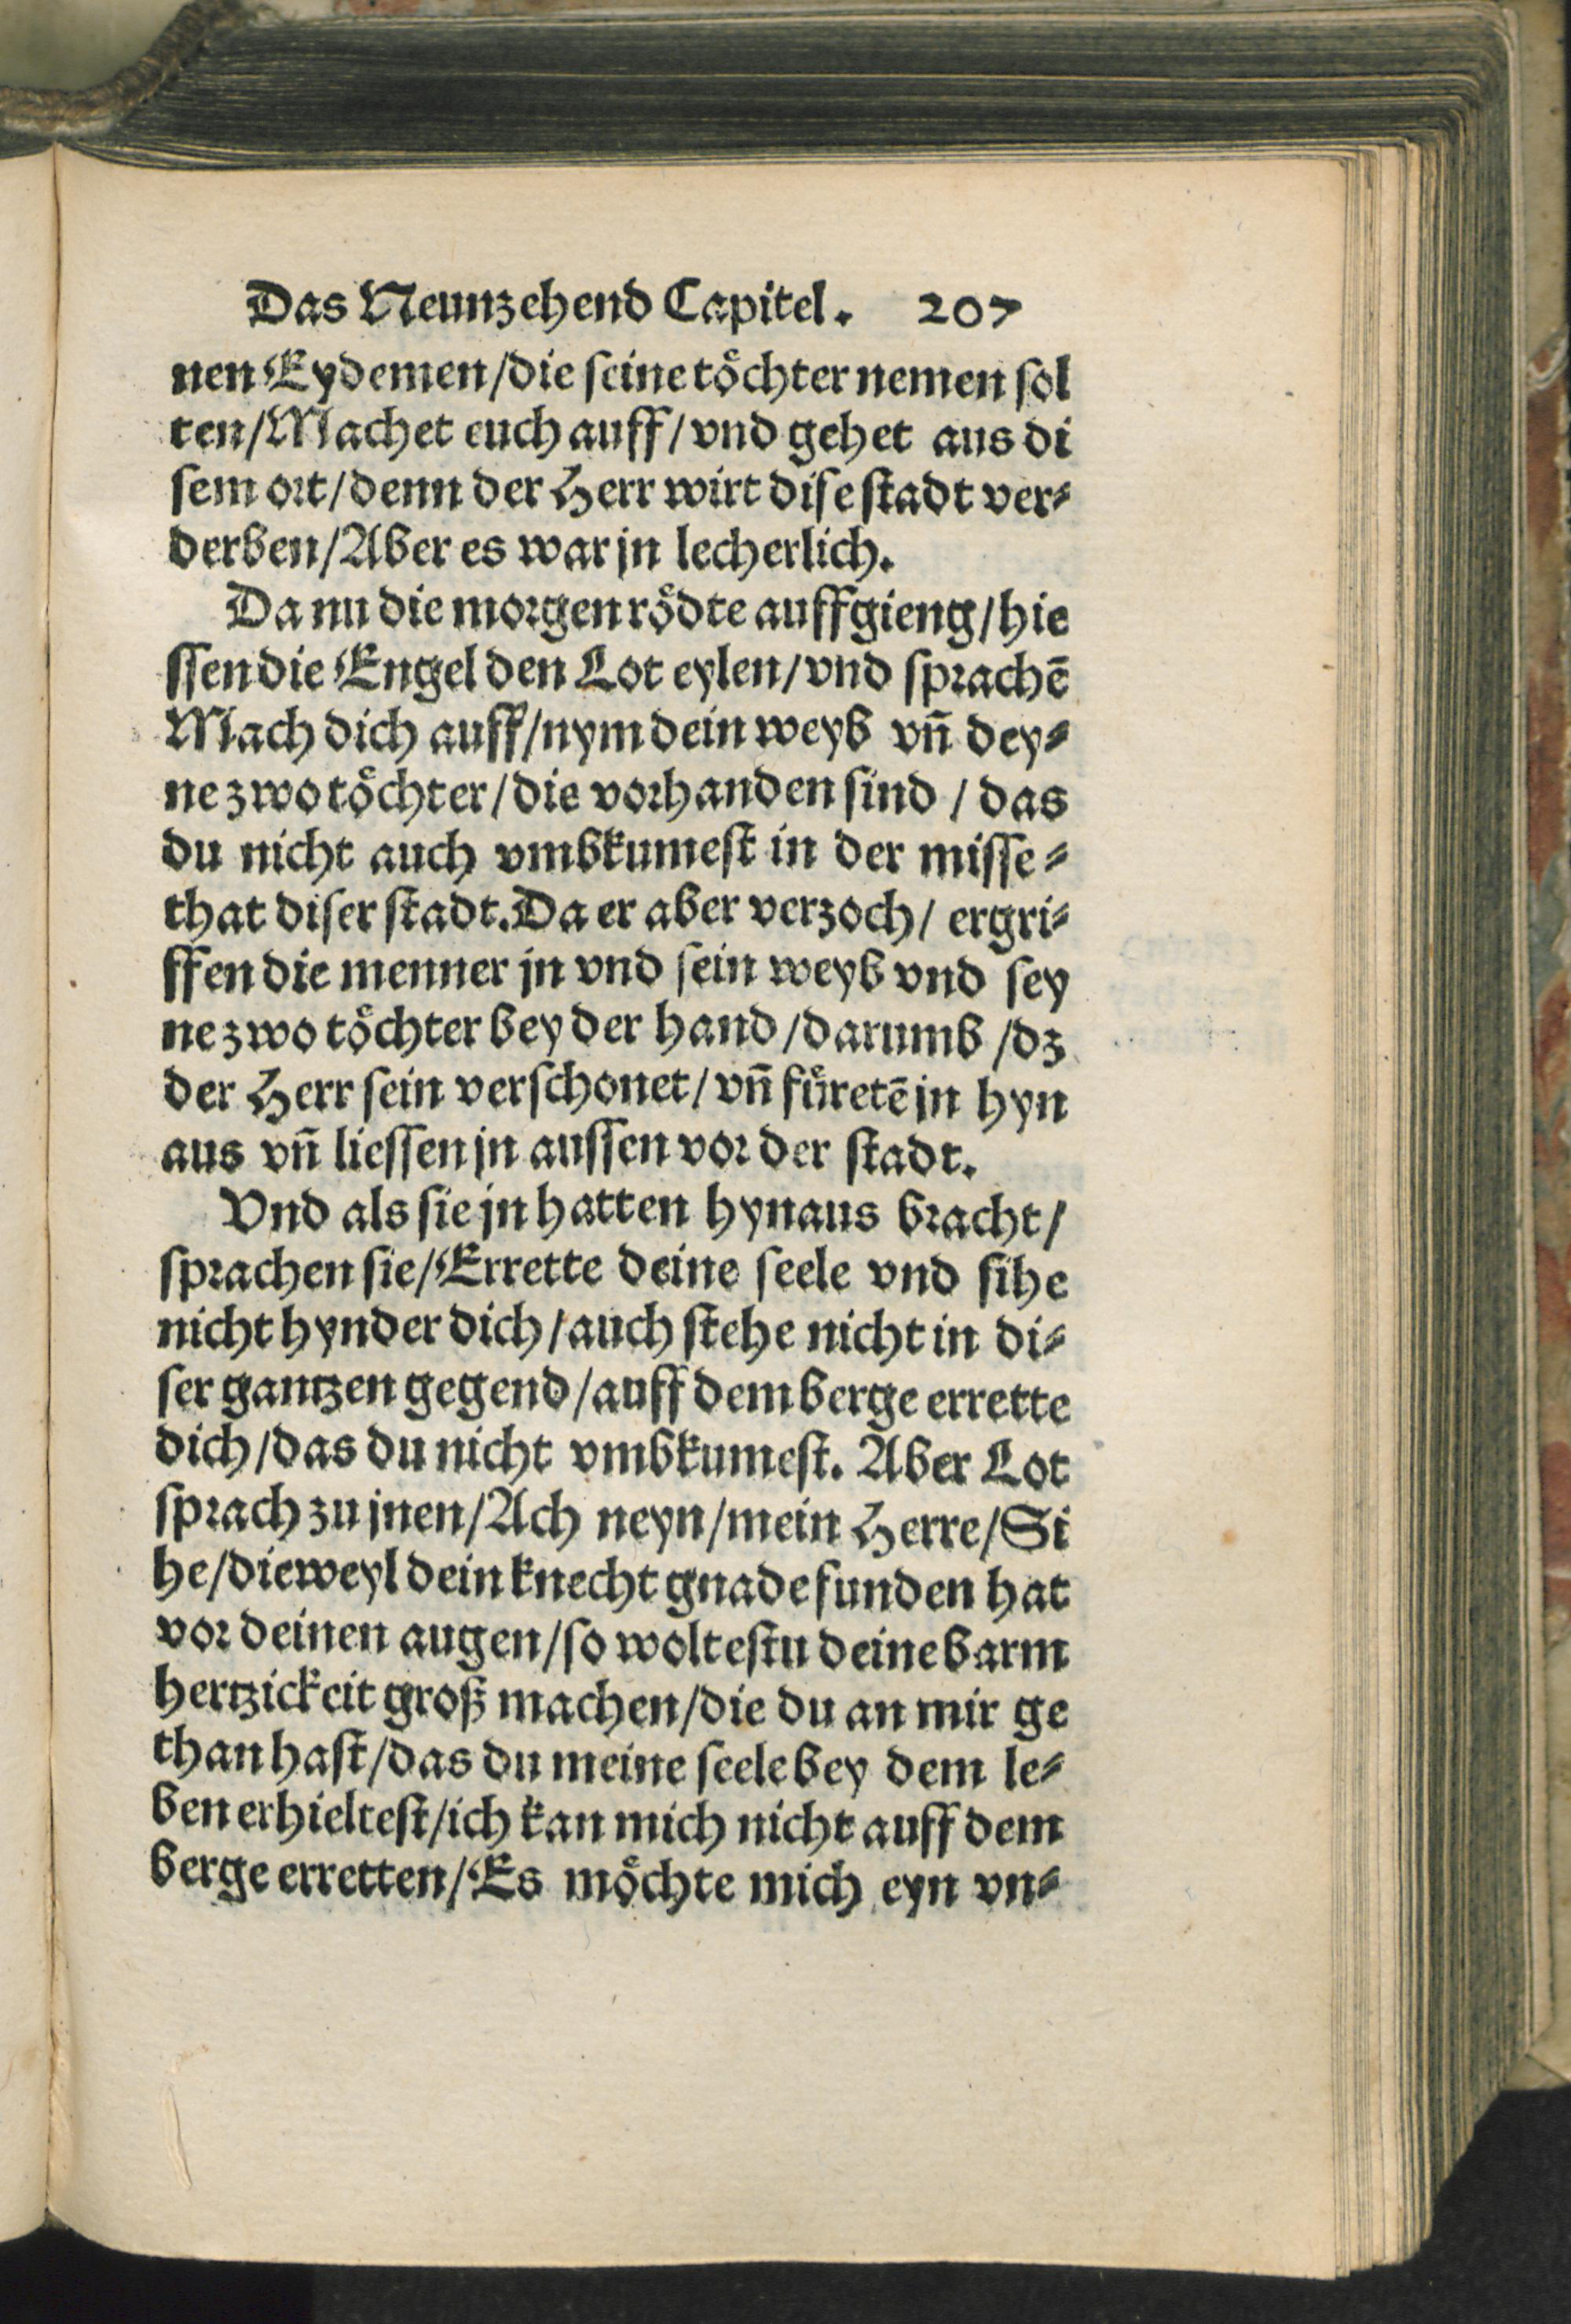 Das Neunzehend Capitel. 207
nen Eydemen/die ſeine toͤchter nemen ſol
ten/Machet euch auff/vnd gehet aus di
ſem ort/denn der Herr wirt diſe ſtadt ver⸗
derben/Aber es war jn lecherlich.
Da nu die morgen roͤdte auffgieng/hie
ſſen die Engel den Lot eylen/vnd ſprachē
Mach dich auff/nym dein weyb vn̄ dey⸗
ne zwo toͤchter/die vorhanden ſind/das
du nicht auch vmbkumeſt in der miſſe⸗
that diſer ſtadt. Da er aber verzoch/ergri⸗
ffen die menner jn vnd ſein weyb vnd ſey
ne zwo toͤchter bey der hand/darumb/dz
der Herr ſein verſchonet/vn̄ fuͤretē jn hyn
aus vn̄ lieſſen jn auſſen vor der ſtadt.
Vnd als ſie jn hatten hynaus bracht/
ſprachen ſie/Errette deine ſeele vnd ſihe
nicht hynder dich/auch ſtehe nicht in di⸗
ſer gantzen gegend/auff dem berge errette
dich/das du nicht vmbkumeſt. Aber Lot
ſprach zu jnen/Ach neyn/mein Herre/Si
he/dieweyl dein knecht gnade funden hat
vor deinen augen/ſo wolteſtu deine barm
hertzickeit groß machen/die du an mir ge
than haſt/das du meine ſeele bey dem le⸗
ben erhielteſt/ich kan mich nicht auff dem
berge erretten/Es moͤchte mich eyn vn⸗